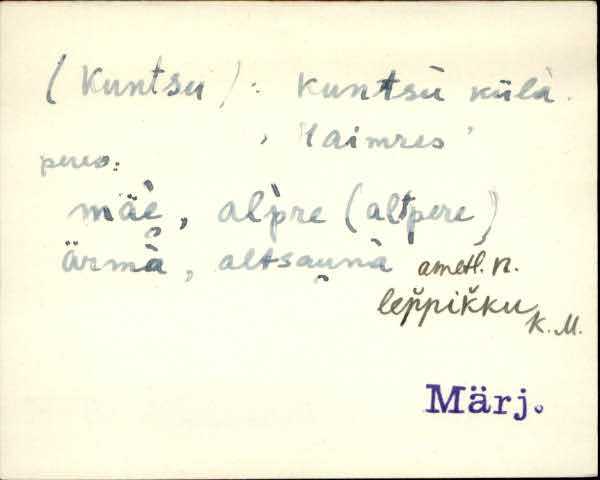 (Kuntsu): kuntsù külà.
, 'laimres'
peres:
mäe̬, alˋpre (altpere)
ärmà̬, altsau̬nà ametl. n.
lep̆pik̆ku K. M.
Märj.